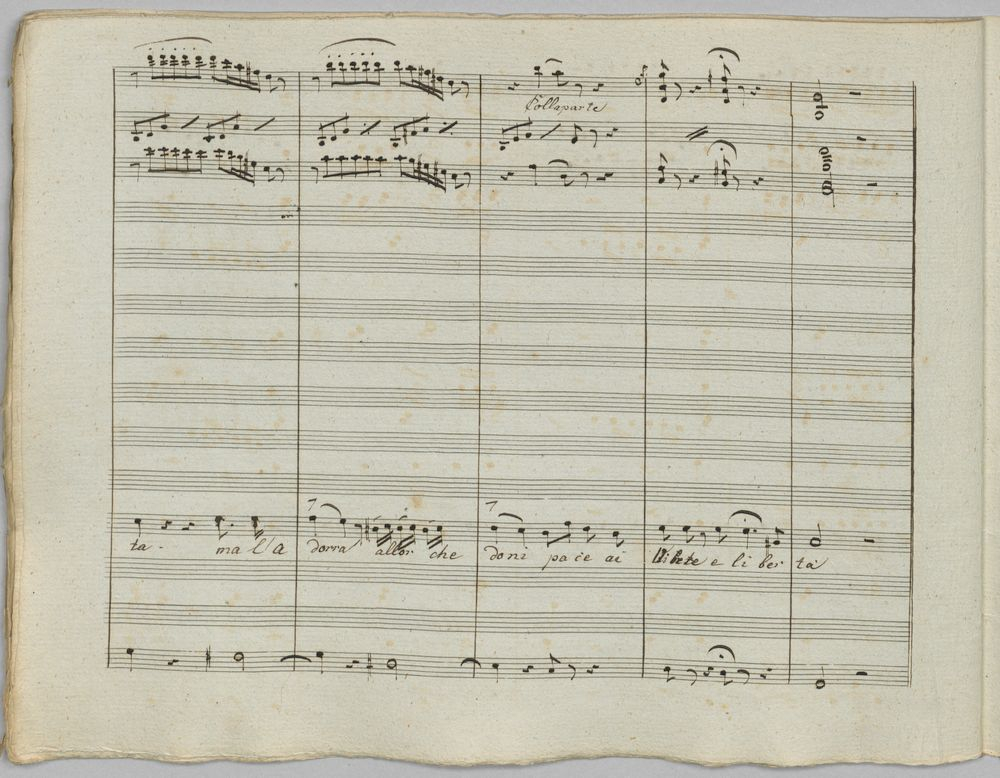 Collaparte
ta- ma l'a dorra allor che doni pace ai e li ber tà